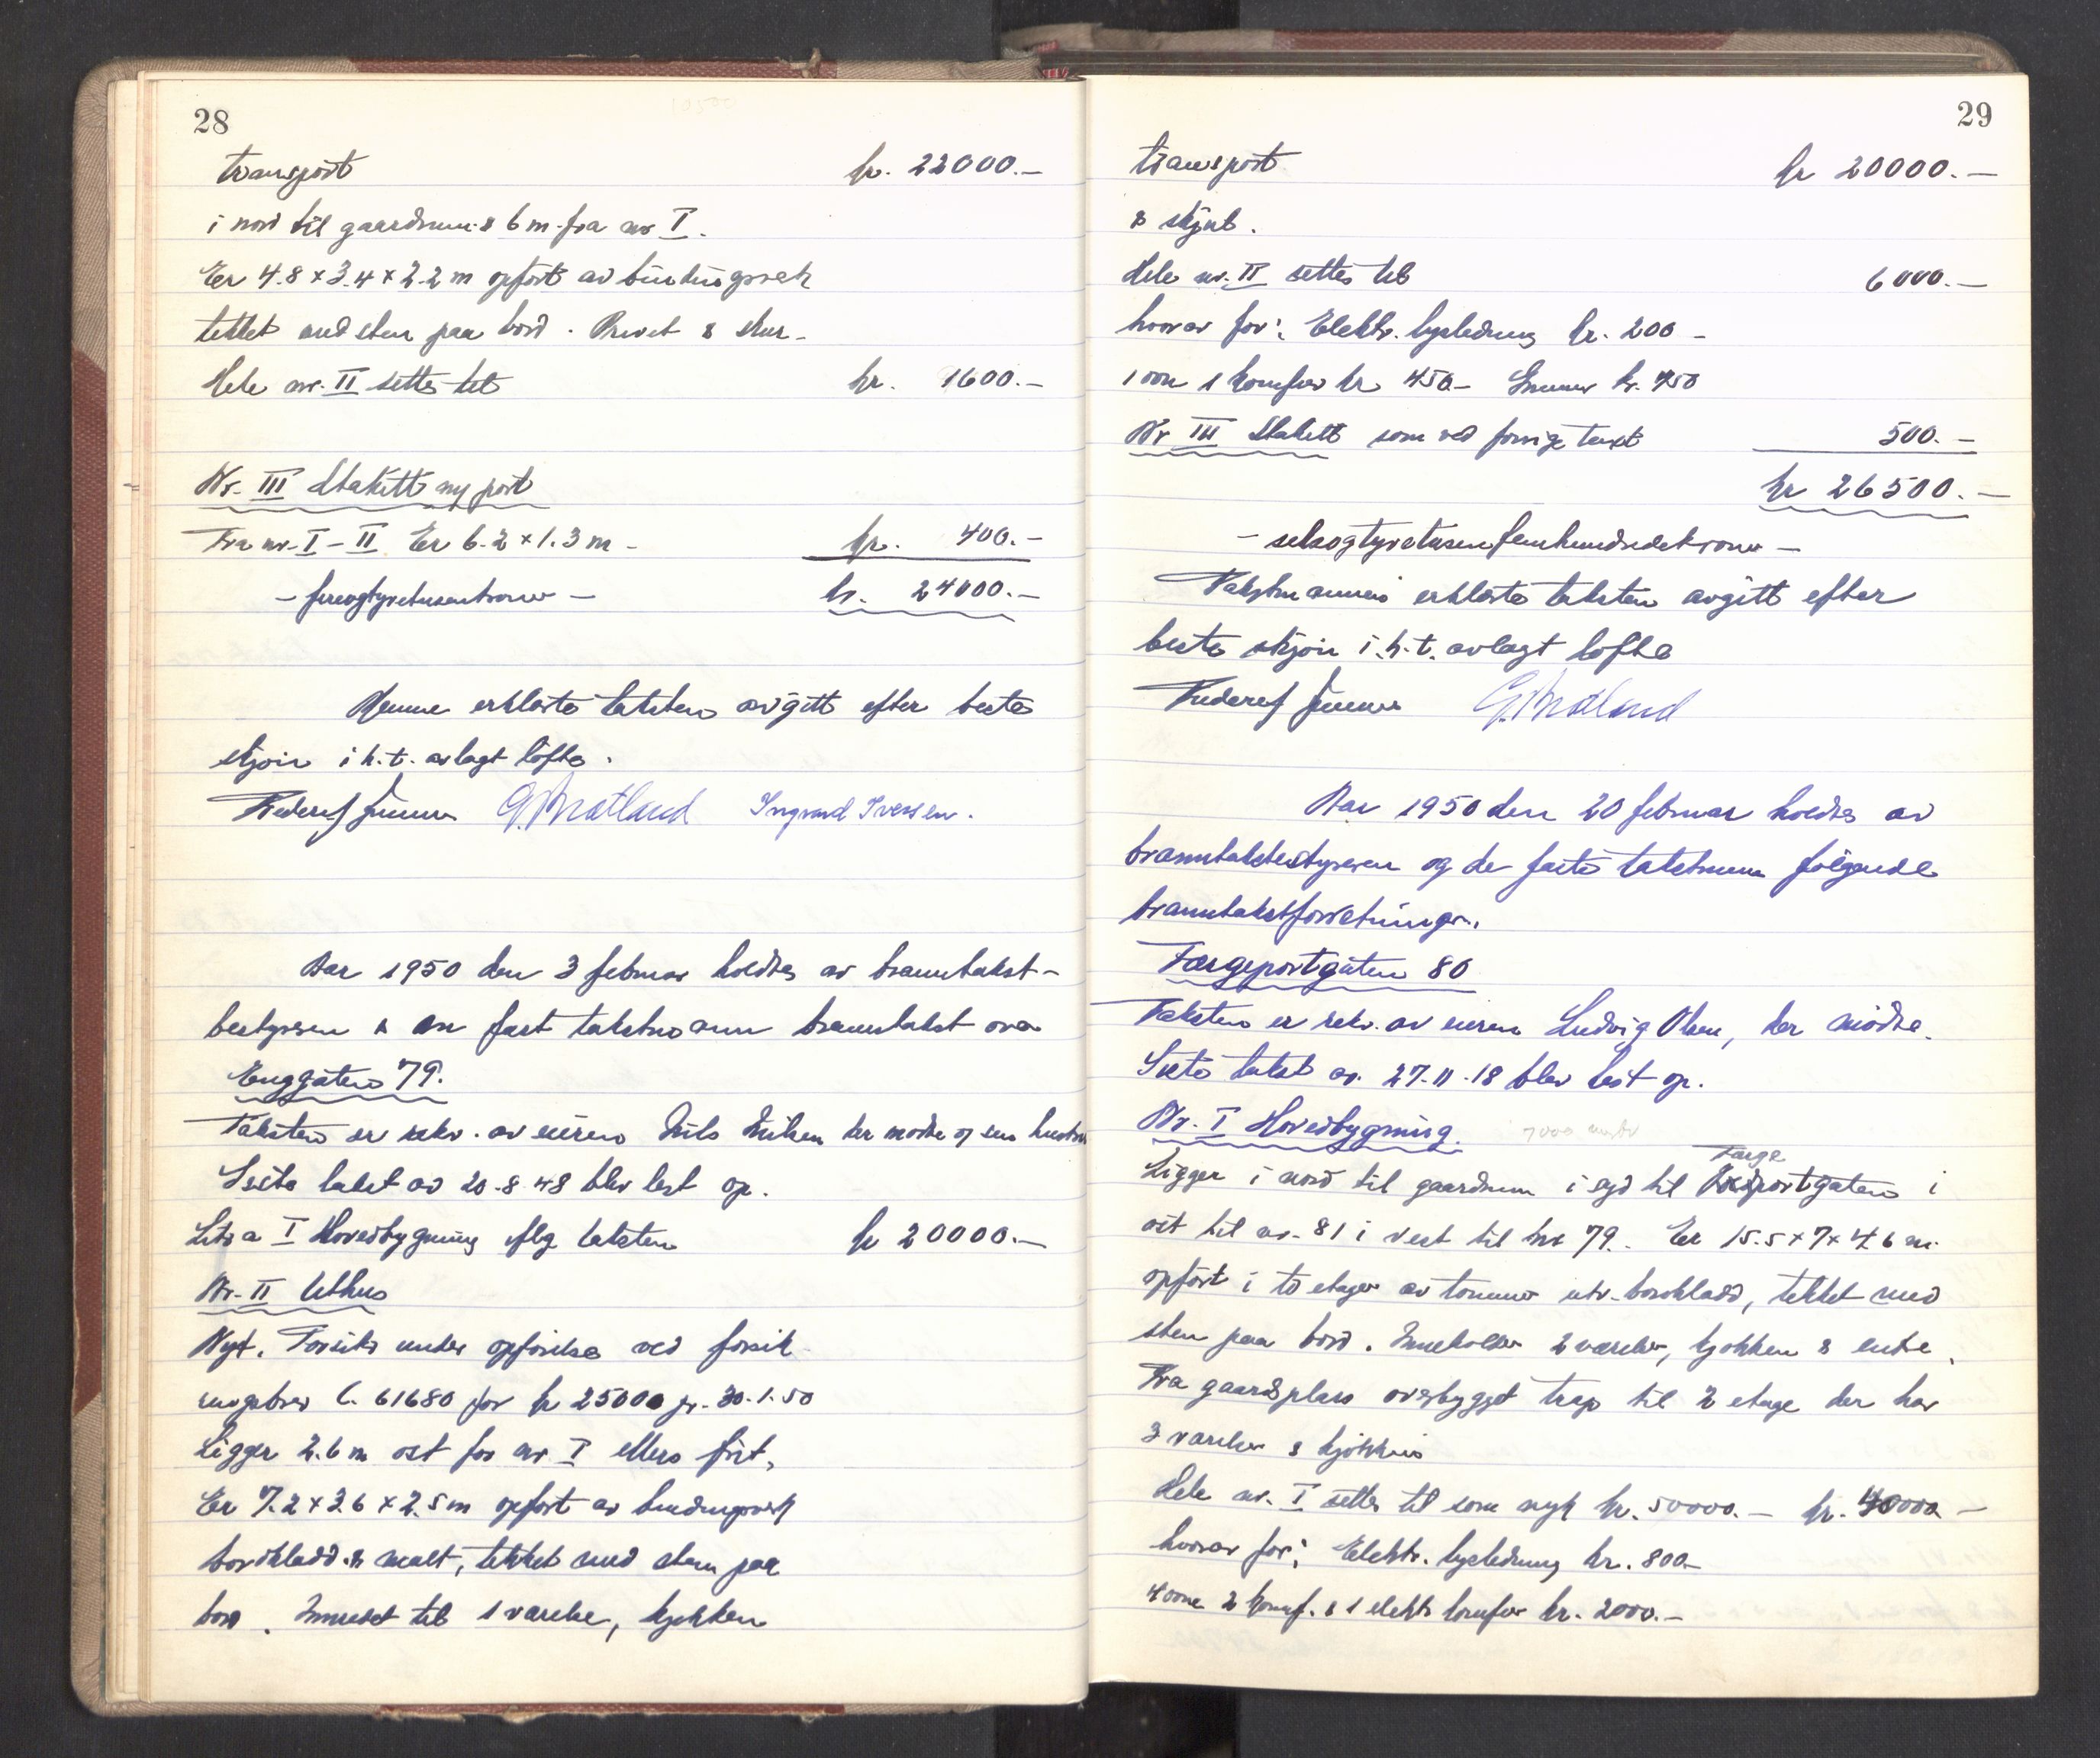 28
transport kr. 22000.-
i nord til gaardsrum & 6 m fra nr I.
Er 4.8 x 3.4 x 2.2 m opført av bindingsverk
tekket med sten paa bord. Privet & skur.
Hele nr. II settes til kr. 1600.-
Nr. III Stakitt ny port
Fra nr. I - II Er 6.2 x 1.3 m - kr. 400.-
- fireogtyvetusenkroner - kr. 24000.-
Menne erklærte taksten avgitt efter beste
skjøn i h.t. avlagt løfte.
G. Bratland Ingvard Iversen.
Aar 1950 den 3 februar holdtes av branntakst-
bestyreren & en fast takstmann branntakst over
Enggaten 79.
Taksten er rekv. av eieren Nils Nilsen der møtte og sin hustru
Siste takst av 20.8.48 blev lest op.
Litra I Hovedbygning iflg taksten kr 20000.-
Nr. II Uthus
Nyt. Forsikr under opførelse ved forsik
ringsbrev C. 61680 for kr 25000 pr. 30.1.50
Ligger 2.6 m øst for nr I ellers frit,
Er 7.2 x 3.6 x 2.5 m opført av bindingsverk
bordkladd & malt, tekket med sten paa
bord. Innredet til 1 værelse, kjøkken
29
transport kr 20000.-
& skjul.
Hele nr. II settes til 6000.-
hvorav for: Elektr. lysledning kr. 200 -
1 ovn 1 komfur kr 450.- kr. 450
Nr III Stakitt som ved forrige takst 500.-
kr 26500.-
- seksogtyvetusenfemhundredekroner -
Takstmannen erklærte taksten avgitt efter
beste skjøn i.h.t. avlagt løfte
G. Bratland
Aar 1950 den 20 februar holdtes av
branntakstbestyreren og de faste takstmenn følgende
branntakstforretninger.
Færgeportgaten 80
Taksten er rekv. av eieren Ludvig Olsen, der møtte.
Siste takst av 27.11.18 blev lest op.
Nr. I Hovedbygning.
Færge
Ligger i nord til gaardsrum i syd til portgaten i
øst til nr. 81 i vest til nr 79. Er 15.5 x 7 x 4.6 m.
opført i to etager av tømmer utv. bordkladd, tekket med
sten paa bord. Inneholder 2 værelser, kjøkken & entre.
Fra gaardsplass overbygget trap til 2 etage der har
3 værelser & kjøkken
Hele nr. I settes til som nyt kr. 50000.- kr. 40000 -
hvorav for: Elektr. lysledning kr. 800.-
4 ovne 2 komf. & 1 elektr komfur kr. 2000.-